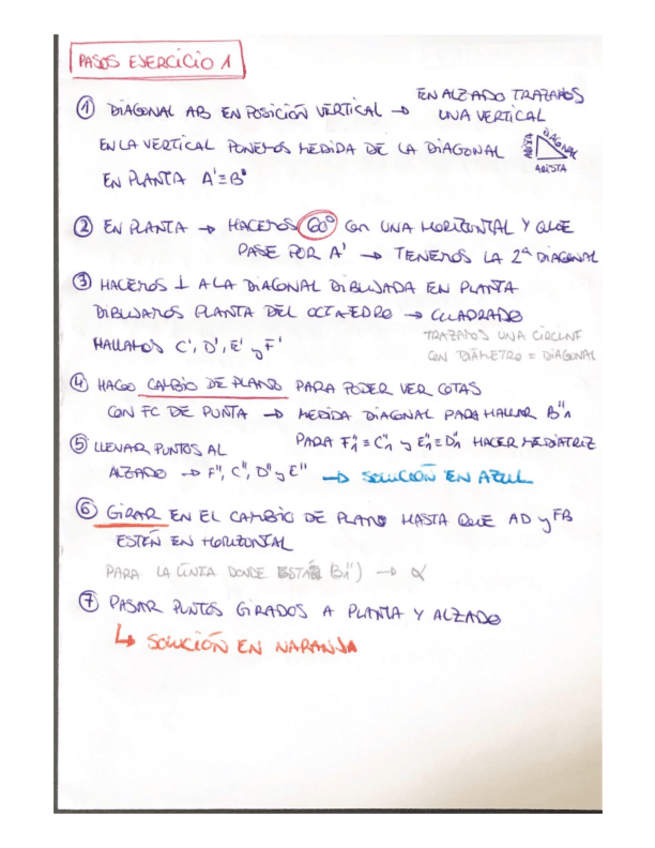 PASOS EJERCICIO 1
① DIAGONAL AB EN POSICIÓN VERTICAL → EN ALZADO TRAZAMOS
UNA VERTICAL
EN LA VERTICAL PONEMOS MEDIDA DE LA DIAGONAL
ARISTA DIAGONAL
ARISTA
EN PLANTA A'≡B'
② EN PLANTA → HACEMOS 60° con UNA HORIZONTAL Y QUE
PASE POR A' → TENEMOS LA 2ª DIAGONAL
③ HACEMOS ⊥ A LA DIAGONAL DIBUJADA EN PLANTA
DIBUJAMOS PLANTA DEL OCTAEDRO → CUADRADO
TRAZAMOS UNA CIRCUNF
HALLAMOS C', D', E' y F'
CON DIÁMETRO = DIAGONAL
④ HAGO CAMBIO DE PLANO PARA PODER VER COTAS
CON FC DE PUNTA → MEDIDA DIAGONAL PARA HALLAR B"₁
PARA F"₁ ≡ C"₁ y E"₁ ≡ D"₁ HACER MEDIATRIZ
⑤ LLEVAR PUNTOS AL
ALZADO → F", C", D" y E" → SOLUCIÓN EN AZUL
⑥ GIRAR EN EL CAMBIO DE PLANO HASTA QUE AD y FB
ESTÉN EN HORIZONTAL
PARA LA LÍNEA DONDE ESTÁ (B₁") → α
⑦ PASAR PUNTOS GIRADOS A PLANTA Y ALZADO
↳ SOLUCIÓN EN NARANJA